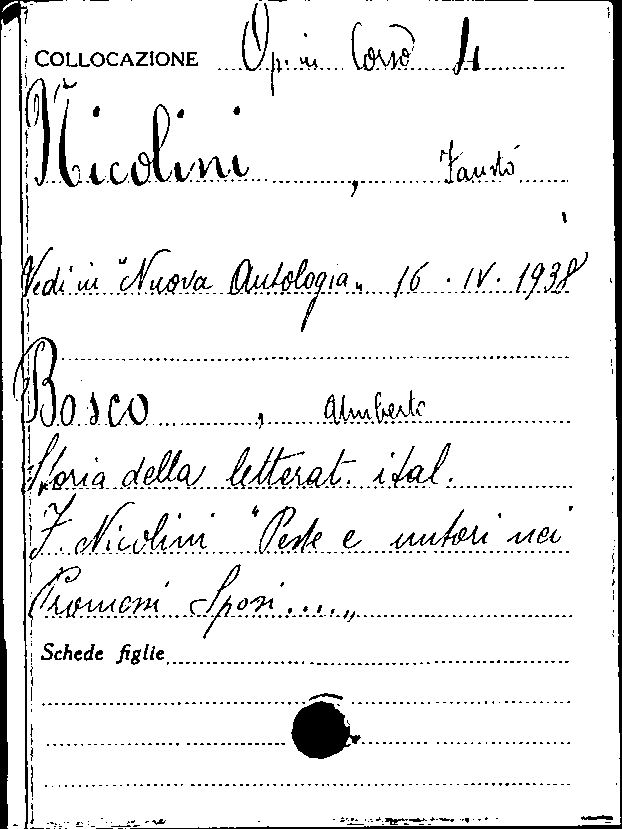 COLLOCAZIONE Op. in Corso 4
Nicolini, Fausto
Vedi in "Nuova Antologia" 16. IV. 1938
Bosco, Umberto
Storia della letterat. ital.
F. Nicolini "Peste e untori nei
Promessi Sposi....„
Schede figlie